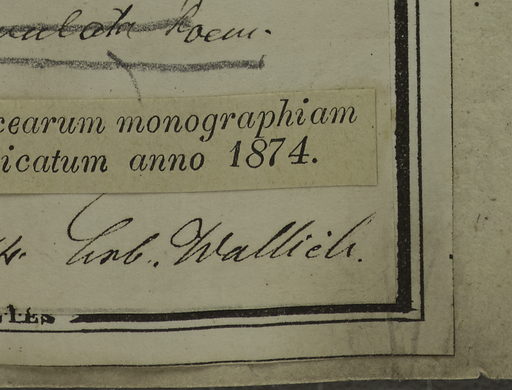 Roem.
cearum monographiam
icatum anno 1874.
Herb. Wallich.